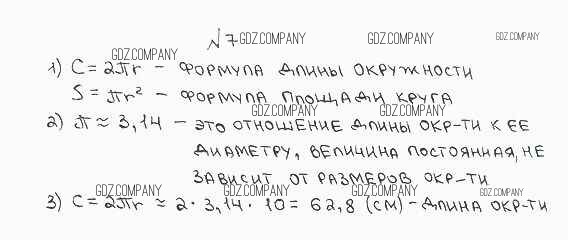 №7 GDZ.COMPANY GDZ.COMPANY GDZ.COMPANY
GDZ.COMPANY
1) C = 2πr – ФОРМУЛА ДЛИНЫ ОКРУЖНОСТИ
S = πr² – ФОРМУЛА ПЛОЩАДИ КРУГА
GDZ.COMPANY GDZ.COMPANY
2) π ≈ 3,14 – ЭТО ОТНОШЕНИЕ ДЛИНЫ ОКР-ТИ К ЕЕ
ДИАМЕТРУ, ВЕЛИЧИНА ПОСТОЯННАЯ, НЕ
ЗАВИСИТ ОТ РАЗМЕРОВ ОКР-ТИ
GDZ.COMPANY GDZ.COMPANY GDZ.COMPANY GDZ.COMPANY
3) C = 2πr ≈ 2 · 3,14 · 10 = 62,8 (СМ) – ДЛИНА ОКР-ТИ